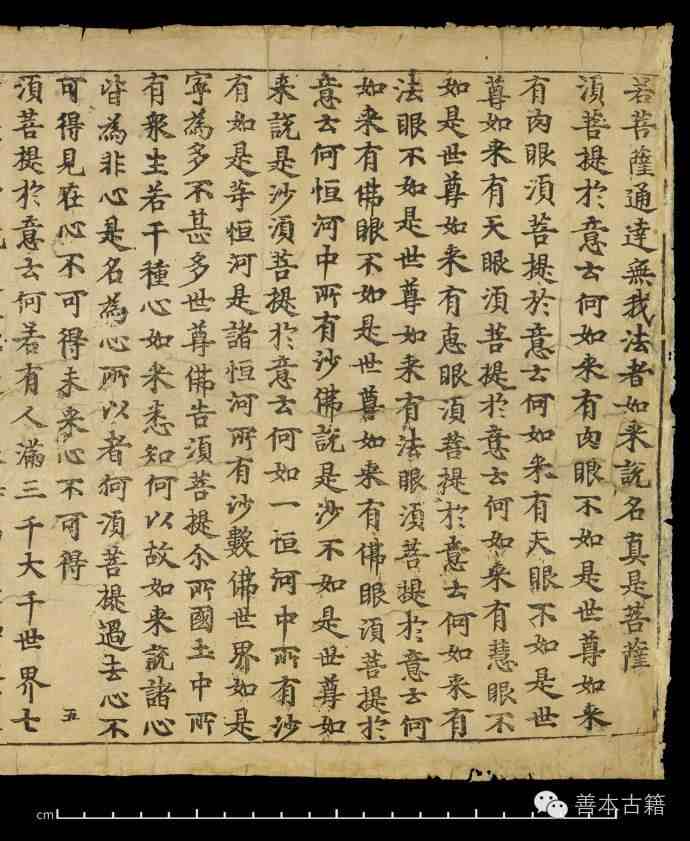 若菩薩通達無我法者如来說名真是菩薩
須菩提於意云何如来有肉眼不如是世尊如来
有肉眼須菩提於意云何如来有天眼不如是世
尊如来有天眼須菩提於意云何如来有慧眼不
如是世尊如来有恵眼須菩提於意云何如来有
法眼不如是世尊如来有法眼須菩提於意云何
如来有佛眼不如是世尊如来有佛眼須菩提於
意云何恒河中所有沙佛說是沙不如是世尊如
来說是沙須菩提於意云何如一恒河中所有沙
有如是等恒河是諸恒河所有沙數佛世界如是
寧為多不甚多世尊佛告須菩提尒所國玉中所
有衆生若干種心如来悉知何以故如来說諸心
皆為非心是名為心所以者何須菩提過去心不
可得見在心不可得未来心不可得 五
須菩提於意云何若有人滿三千大千世界七
cm
善本古籍